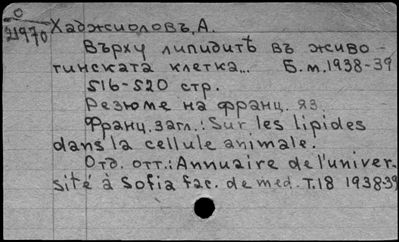 О
21970
Хаджиоловъ, А.
Върху липидитѣ въ живо-
тинската клетка... Б.м. 1938-39
516-520 стр.
Резюме на франц. яз.
Франц. загл.: Sur les lipides
dans la cellule animale.
Отд. отт.: Annuaire de l'univer.
sité à Sofia fac. de med. Т.18 1938-39